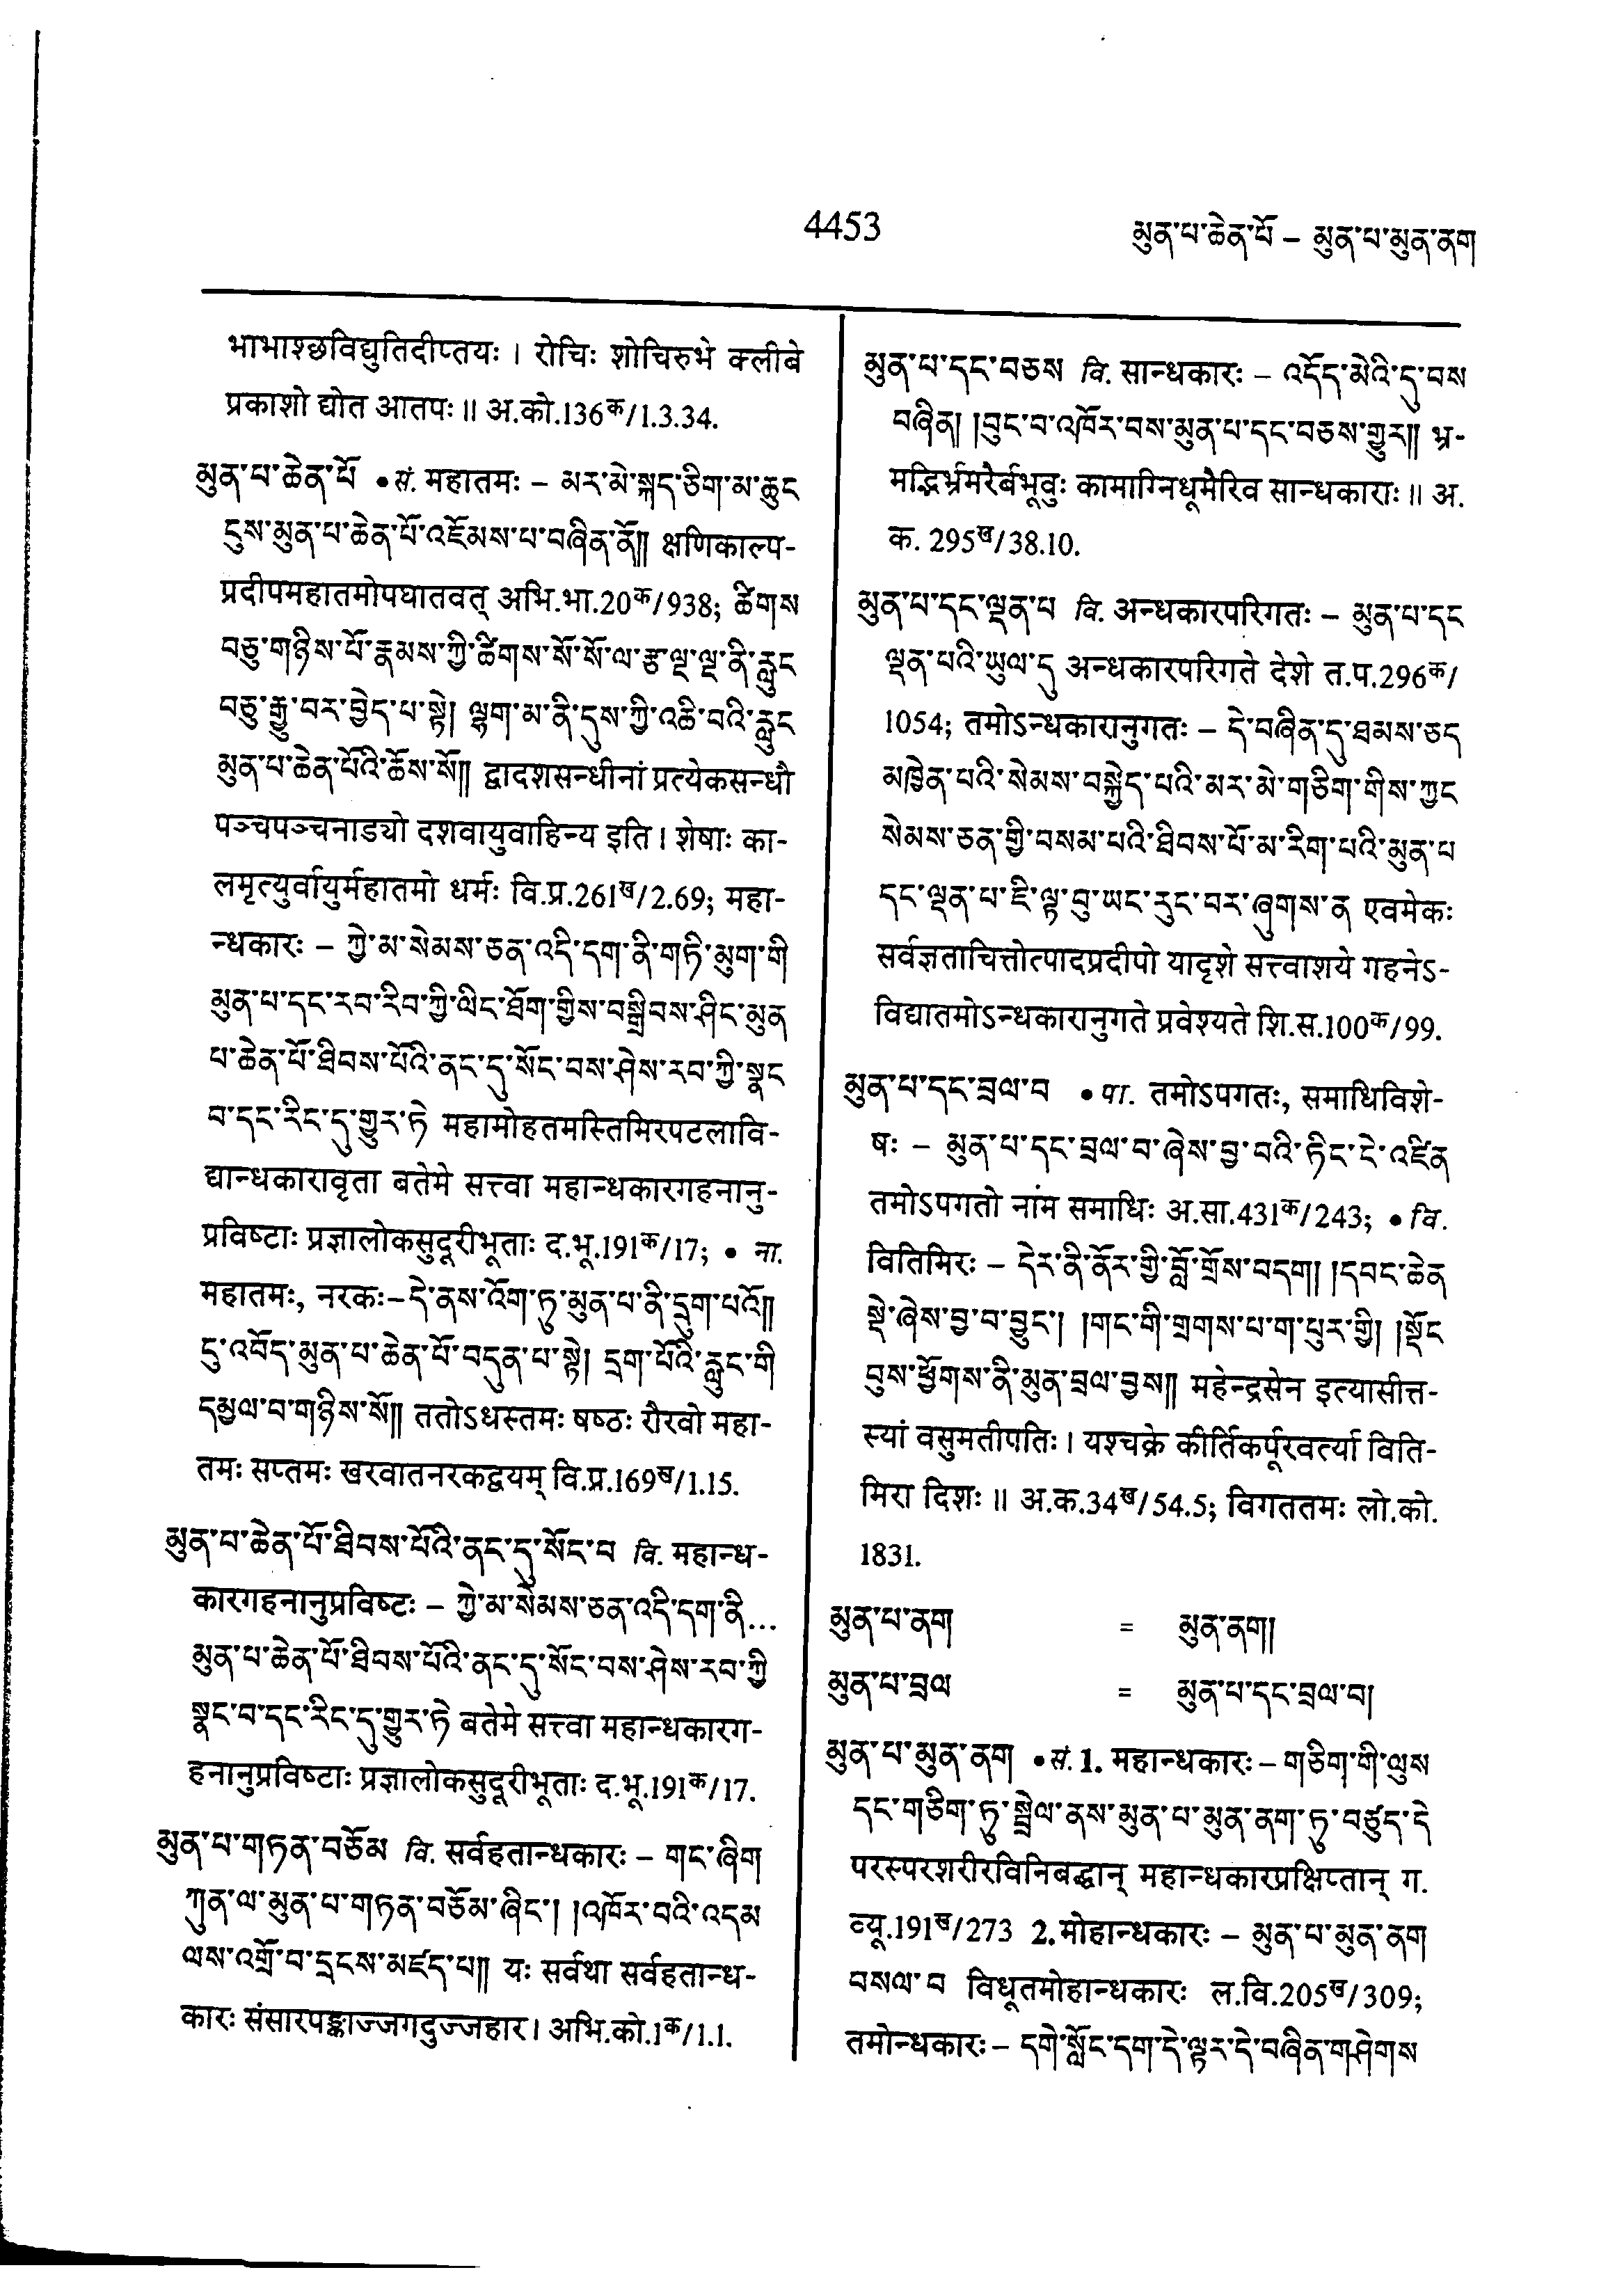 4453
མུན་པ་ཆེན་པོ – མུན་པ་མུན་ནག
भाभाश्छविद्युतिदीप्तयः । रोचिः शोचिरुभे क्लीबे
प्रकाशो द्योत आतपः ॥ अ.को.136क/1.3.34.
མུན་པ་ཆེན་པོ • सं. महातमः – མར་མེ་སྐད་ཅིག་མ་ཆུང
ངུས་མུན་པ་ཆེན་པོ་འཇོམས་པ་བཞིན་ནོ།། क्षणिकाल्प-
प्रदीपमहातमोपघातवत् अभि.भा.20क/938; ཚིགས
བཅུ་གཉིས་པོ་རྣམས་ཀྱི་ཚིགས་སོ་སོ་ལ་རྩ་ལྔ་ལྔ་ནི་རླུང
བཅུ་རྒྱུ་བར་བྱེད་པ་སྟེ། ལྷག་མ་ནི་དུས་ཀྱི་འཆི་བའི་རླུང
མུན་པ་ཆེན་པོའི་ཆོས་སོ།། द्वादशसन्धीनां प्रत्येकसन्धौ
पञ्चपञ्चनाड्यो दशवायुवाहिन्य इति । शेषाः का-
लमृत्युर्वायुर्महातमो धर्मः वि.प्र.261ख/2.69; महा-
न्धकारः – ཀྱེ་མ་སེམས་ཅན་འདི་དག་ནི་གཏི་མུག་གི
མུན་པ་དང་རབ་རིབ་ཀྱི་ལིང་ཐོག་གྱིས་བསྒྲིབས་ཤིང་མུན
པ་ཆེན་པོ་ཐིབས་པོའི་ནང་དུ་སོང་བས་ཤེས་རབ་ཀྱི་སྣང
བ་དང་རིང་དུ་གྱུར་ཏེ महामोहतमस्तिमिरपटलावि-
द्यान्धकारावृता बतेमे सत्त्वा महान्धकारगहनानु-
प्रविष्टाः प्रज्ञालोकसुदूरीभूताः द.भू.191क/17; • ना.
महातमः, नरकः–དེ་ནས་འོག་ཏུ་མུན་པ་ནི་དྲུག་པའོ།།
དུ་འབོད་མུན་པ་ཆེན་པོ་བདུན་པ་སྟེ། དྲག་པོའི་རླུང་གི
དམྱལ་བ་གཉིས་སོ།། ततोऽधस्तमः षष्ठः रौरवो महा-
तमः सप्तमः खरवातनरकद्वयम् वि.प्र.169ख/1.15.
མུན་པ་ཆེན་པོ་ཐིབས་པོའི་ནང་དུ་སོང་བ वि. महान्ध-
कारगहनानुप्रविष्टः – ཀྱེ་མ་སེམས་ཅན་འདི་དག་ནི...
མུན་པ་ཆེན་པོ་ཐིབས་པོའི་ནང་དུ་སོང་བས་ཤེས་རབ་ཀྱི
སྣང་བ་དང་རིང་དུ་གྱུར་ཏེ बतेमे सत्त्वा महान्धकारग-
हनानुप्रविष्टाः प्रज्ञालोकसुदूरीभूताः द.भू.191क/17.
མུན་པ་གཏན་བཅོམ वि. सर्वहतान्धकारः – གང་ཞིག
ཀུན་ལ་མུན་པ་གཏན་བཅོམ་ཞིང་། །འཁོར་བའི་འདམ
ལས་འགྲོ་བ་དྲངས་མཛད་པ།། यः सर्वथा सर्वहतान्ध-
कारः संसारपङ्काज्जगदुज्जहार । अभि.को.1क/1.1.
མུན་པ་དང་བཅས वि. सान्धकारः – འདོད་མེའི་དུ་བས
བཞིན། །བུང་བ་འཁོར་བས་མུན་པ་དང་བཅས་གྱུར།། भ्र-
मद्भिर्भ्रमरैर्बभूवुः कामाग्निधूमैरिव सान्धकाराः ॥ अ.
क. 295ख/38.10.
མུན་པ་དང་ལྡན་པ वि. अन्धकारपरिगतः – མུན་པ་དང
ལྡན་པའི་ཡུལ་དུ अन्धकारपरिगते देशे त.प.296क/
1054; तमोऽन्धकारानुगतः – དེ་བཞིན་དུ་ཐམས་ཅད
མཁྱེན་པའི་སེམས་བསྐྱེད་པའི་མར་མེ་གཅིག་གིས་ཀྱང
སེམས་ཅན་གྱི་བསམ་པའི་ཐིབས་པོ་མ་རིག་པའི་མུན་པ
དང་ལྡན་པ་ཇི་ལྟ་བུ་ཡང་རུང་བར་ཞུགས་ན एवमेकः
सर्वज्ञताचित्तोत्पादप्रदीपो यादृशे सत्त्वाशये गहनेऽ-
विद्यातमोऽन्धकारानुगते प्रवेश्यते शि.स.100क/99.
མུན་པ་དང་བྲལ་བ • पा. तमोऽपगतः, समाधिविशे-
षः – མུན་པ་དང་བྲལ་བ་ཞེས་བྱ་བའི་ཏིང་ངེ་འཛིན
तमोऽपगतो नाम समाधिः अ.सा.431क/243; • वि.
वितिमिरः – དེར་ནི་ནོར་གྱི་བློ་གྲོས་བདག། །དབང་ཆེན
སྡེ་ཞེས་བྱ་བ་བྱུང་། །གང་གི་གྲགས་པ་ག་པུར་གྱི། །སྡོང
བུས་ཕྱོགས་ནི་མུན་བྲལ་བྱས།། महेन्द्रसेन इत्यासीत्त-
स्यां वसुमतीपतिः । यश्चक्रे कीर्तिकर्पूरवर्त्या विति-
मिरा दिशः ॥ अ.क.34ख/54.5; विगततमः लो.को.
1831.
མུན་པ་ནག = མུན་ནག།
མུན་པ་བྲལ = མུན་པ་དང་བྲལ་བ།
མུན་པ་མུན་ནག • सं. 1. महान्धकारः – གཅིག་གི་ལུས
དང་གཅིག་ཏུ་སྦྲེལ་ནས་མུན་པ་མུན་ནག་ཏུ་བཙུད་དེ
परस्परशरीरविनिबद्धान् महान्धकारप्रक्षिप्तान् ग.
व्यू.191ख/273 2. मोहान्धकारः – མུན་པ་མུན་ནག
བསལ་བ विधूतमोहान्धकारः ल.वि.205ख/309;
तमोन्धकारः – དགེ་སློང་དག་དེ་ལྟར་དེ་བཞིན་གཤེགས